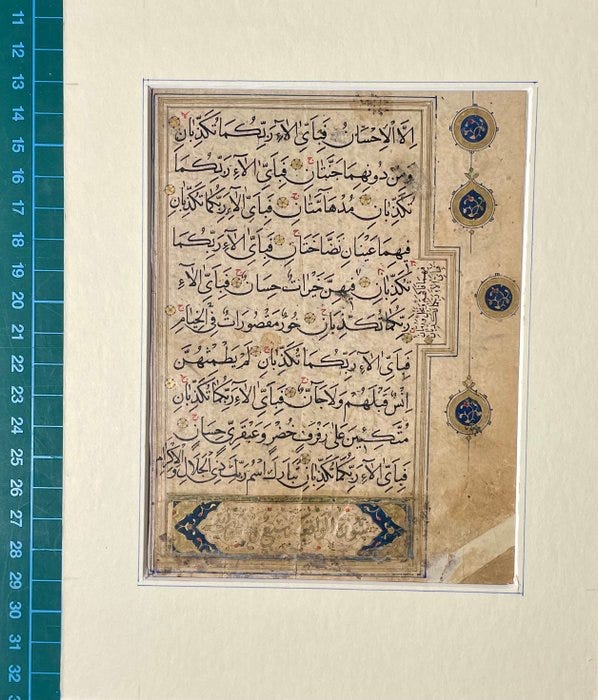 إِلَّا الْإِحْسَانُ فَبِأَيِّ آلَاءِ رَبِّكُمَا تُكَذِّبَانِ
وَمِنْ دُونِهِمَا جَنَّتَانِ فَبِأَيِّ آلَاءِ رَبِّكُمَا
تُكَذِّبَانِ مُدْهَامَّتَانِ فَبِأَيِّ آلَاءِ رَبِّكُمَا تُكَذِّبَانِ
فِيهِمَا عَيْنَانِ نَضَّاخَتَانِ فَبِأَيِّ آلَاءِ رَبِّكُمَا
تُكَذِّبَانِ فِيهِنَّ خَيْرَاتٌ حِسَانٌ فَبِأَيِّ آلَاءِ
رَبِّكُمَا تُكَذِّبَانِ حُورٌ مَقْصُورَاتٌ فِي الْخِيَامِ
فَبِأَيِّ آلَاءِ رَبِّكُمَا تُكَذِّبَانِ لَمْ يَطْمِثْهُنَّ
إِنْسٌ قَبْلَهُمْ وَلَا جَانٌّ فَبِأَيِّ آلَاءِ رَبِّكُمَا تُكَذِّبَانِ
مُتَّكِئِينَ عَلَى رَفْرَفٍ خُضْرٍ وَعَبْقَرِيٍّ حِسَانٍ
فَبِأَيِّ آلَاءِ رَبِّكُمَا تُكَذِّبَانِ تَبَارَكَ اسْمُ رَبِّكَ ذِي الْجَلَالِ وَالْإِكْرَامِ
سورة الواقعة
11
12
13
14
15
16
17
18
19
20
21
22
23
24
25
26
27
28
29
30
31
32